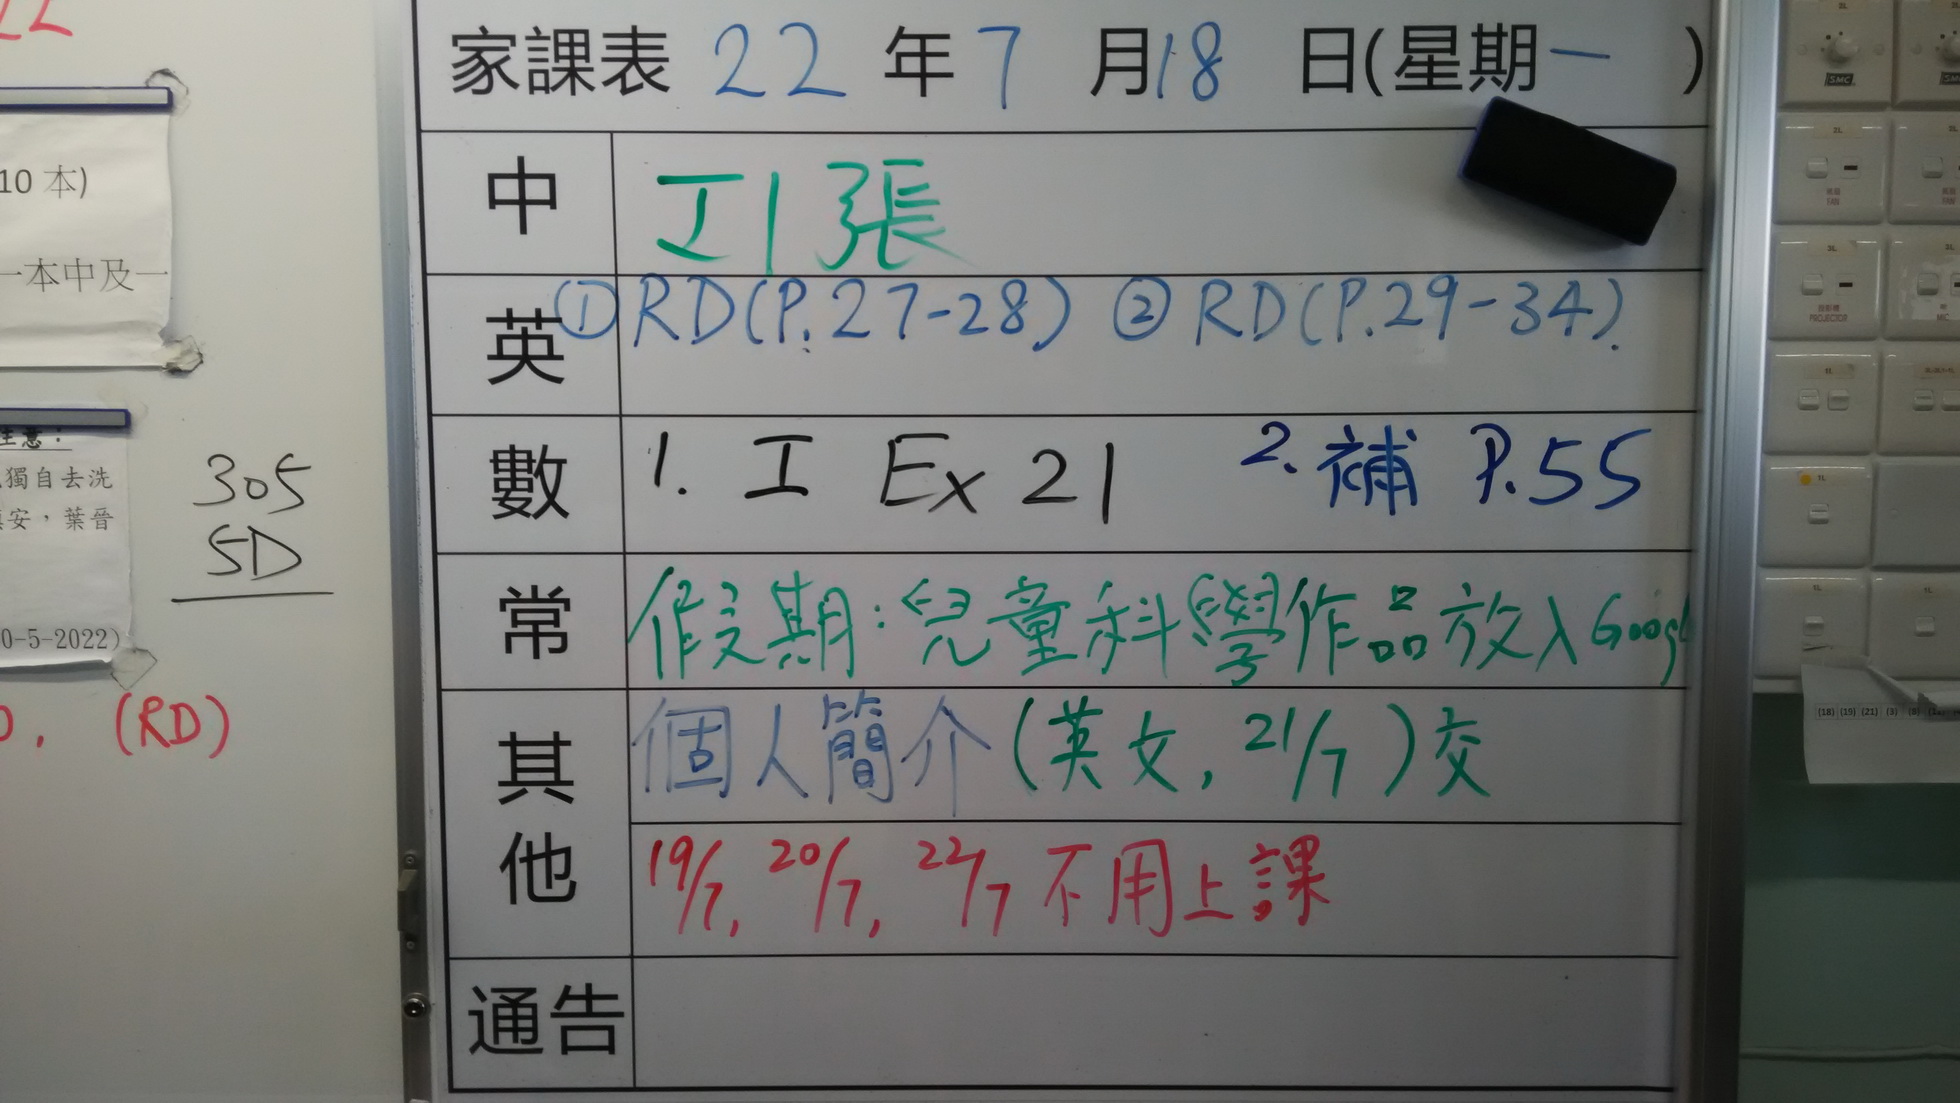 22
10 本)
一本中及一
注意：
獨自去洗
安，葉晉
0-5-2022)
305
5D
(RD)
家課表 22 年 7 月 18 日(星期一 )
中 工1張
英 ①RD(P.27-28) ②RD(P.29-34).
數 1. 工 Ex 21 2. 補 P.55
常 假期:兒童科學作品放入Googl
其他 個人簡介(英文, 21/7)交
19/7, 20/7, 22/7 不用上課
通告
SMC
2L
FAN
3L
PROJECTOR
MIC
1L
1L
1L
1L
(18) (19) (21) (3)